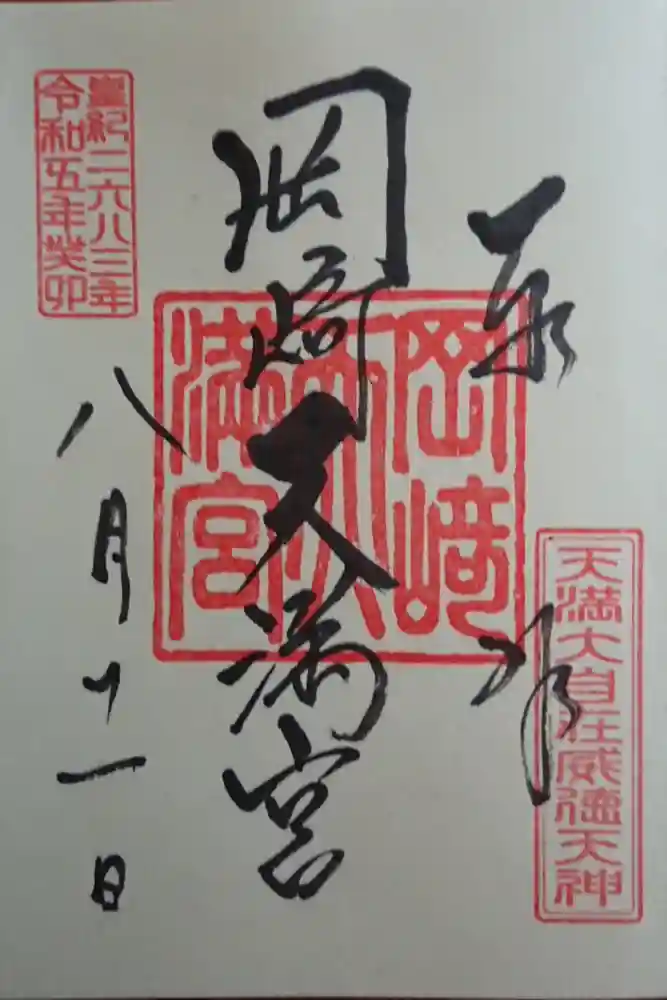 奉拝
天満大自在威徳天神
岡崎天満宮
岡﨑天満宮
皇紀二六八三年
令和五年癸卯
八月十一日